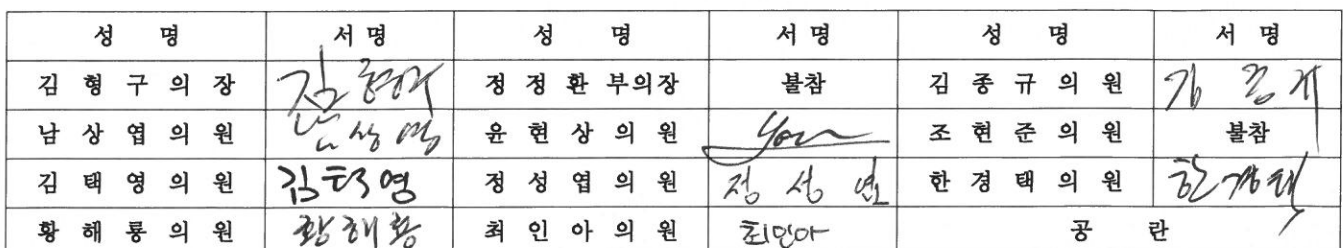 성 명 서 명 성 명 서 명 성 명 서 명
김 형 구 의 장 김형구 정 정 환 부의장 불참 김 종 규 의 원 김종규
남 상 엽 의 원 남상엽 윤 현 상 의 원 you 조 현 준 의 원 불참
김 택 영 의 원 김택영 정 성 엽 의 원 정성엽 한 경 택 의 원 한경택
황 해 룡 의 원 황해룡 최 인 아 의 원 최인아 공 란